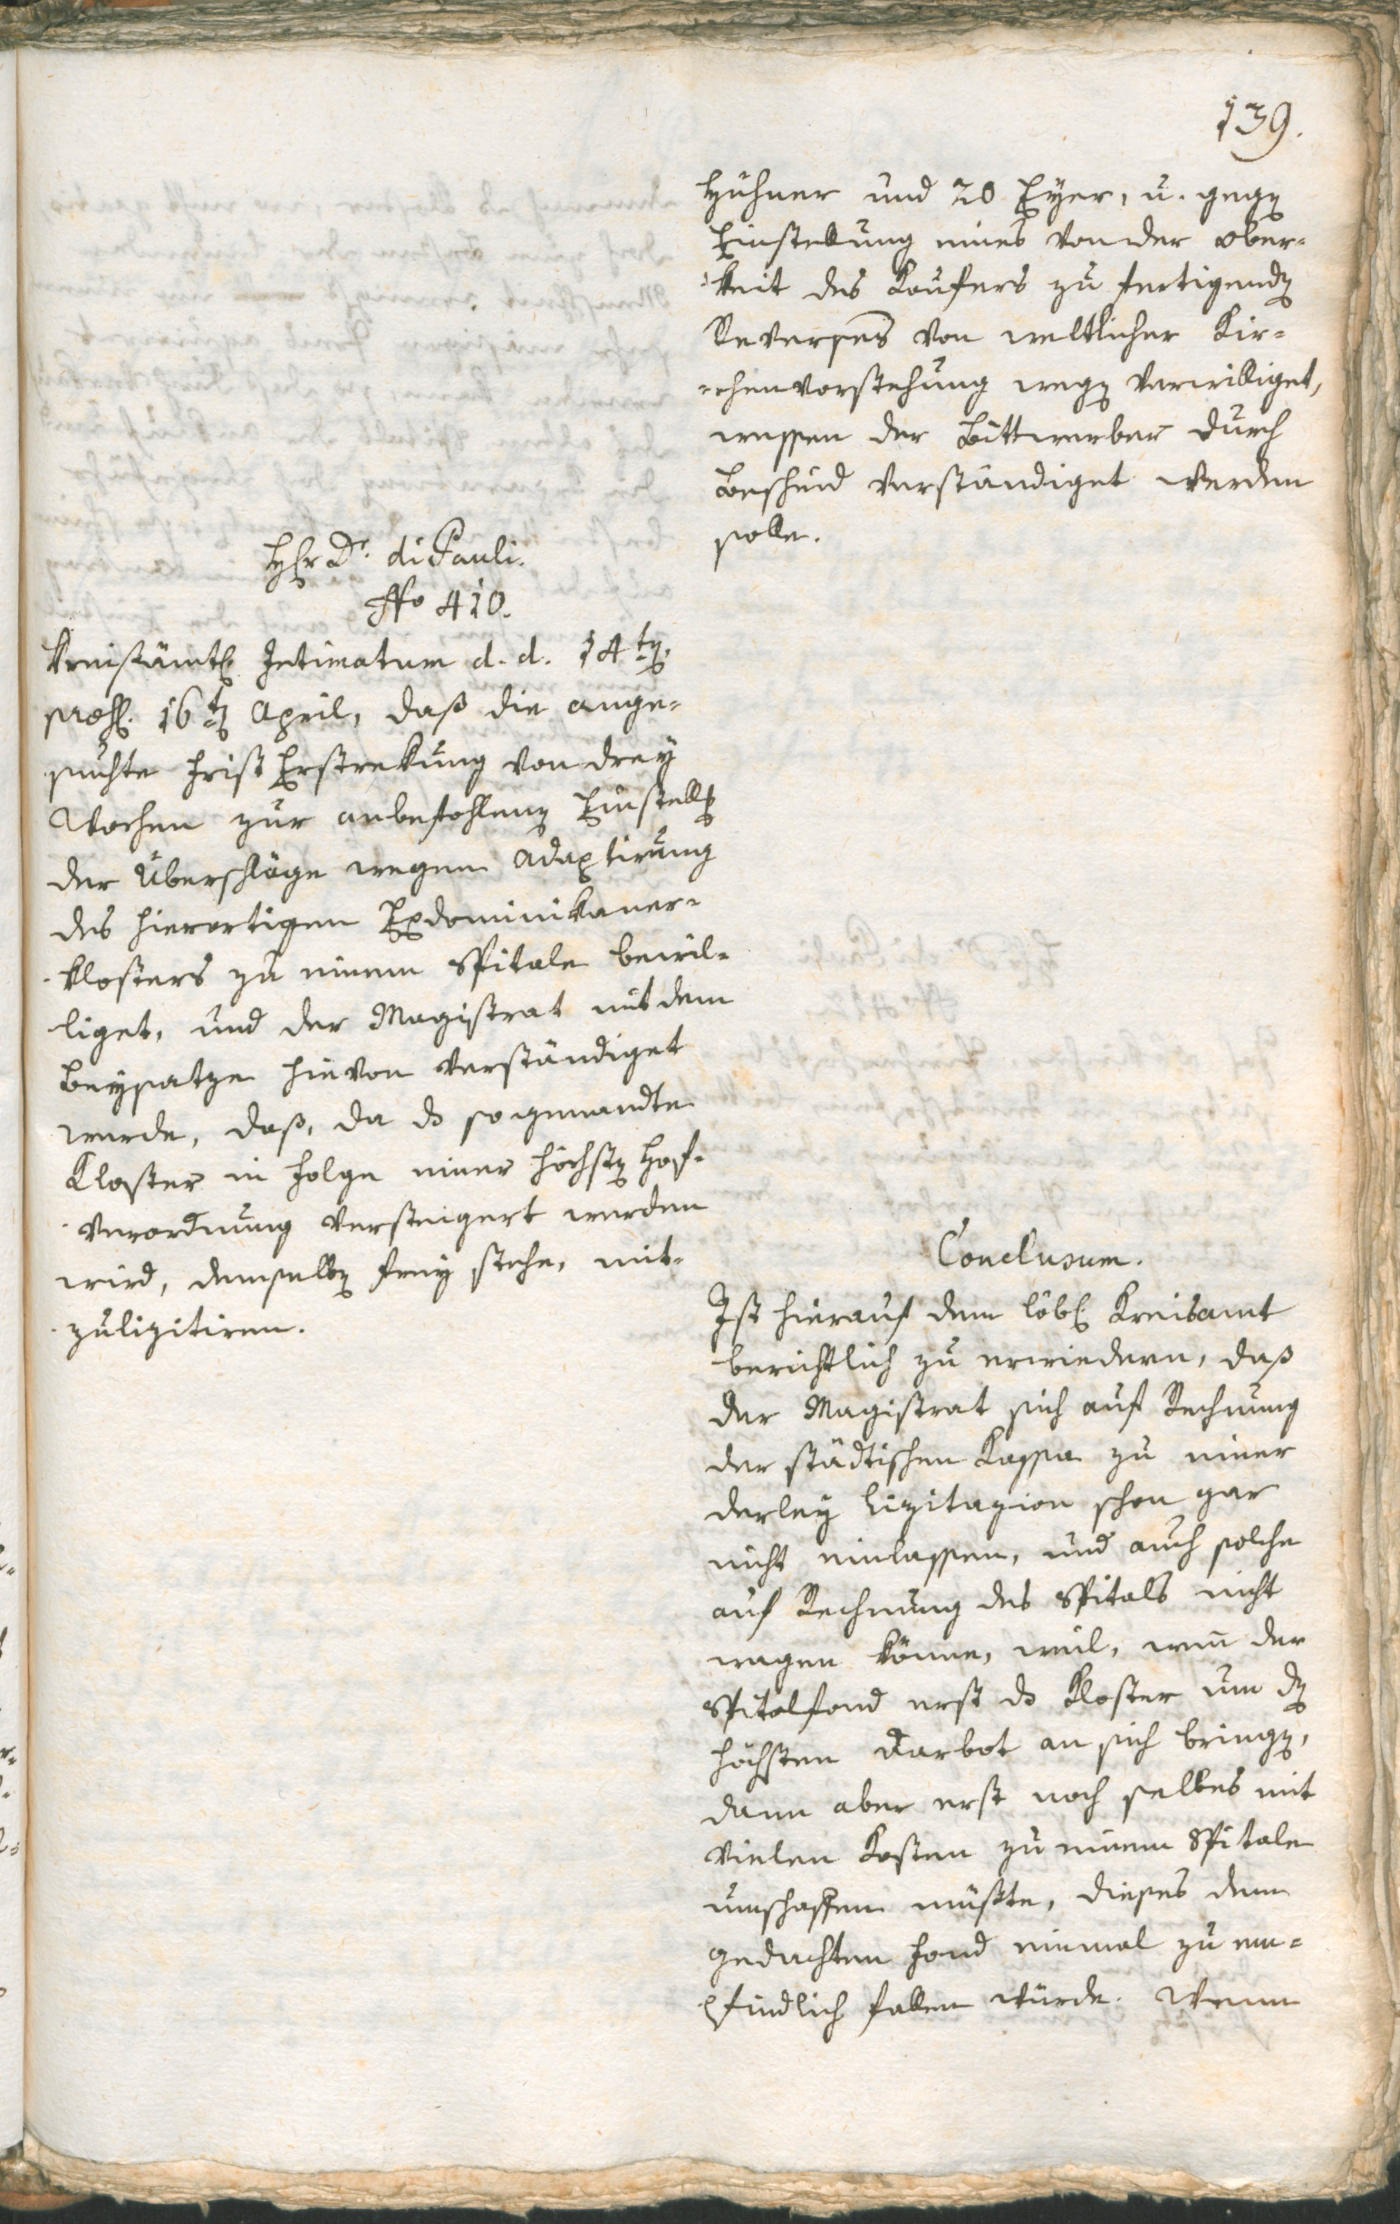 139.
Hühner und 20 Eyer, u. gegen
Einstellung eines von der Ober-
keit des Kaufers zu fertigenden
Reverses von weltlicher Kir-
chenvorstehung wegen verwilliget,
wessen der Bittwerber durch
Bescheid verständiget werden
solle.
Hr Dr. di Pauli.
No 410.
Kreisämtl. Intimatum d. d. 14ten
praes. 16ten April, daß die ange-
suchte Frist Erstrekung von drey
Wochen zur anbefohlenen Einstellung
der Überschläge wegen Adaptirung
des hierortigen Exdominikaner-
klosters zu einem Spitale bewil-
liget, und der Magistrat mit dem
Beysatze hievon verständiget
werde, daß, da das sogenandte
Kloster in Folge einer höchsten Hof-
verordnung versteigert werden
wird, demselben frey stehe, mit-
zulizitiren.
Conclusum.
Ist hierauf dem löbl. Kreisamt
berichtlich zu erwiedern, daß
der Magistrat sich auf Rechnung
der städtischen Kassa zu einer
derley Lizitazion schon gar
nicht einlassen, und auch solche
auf Rechnung des Spitals nicht
wagen könne, weil, wenn der
Spitalfond erst das Kloster um den
höchsten Darbot an sich bringen,
dann aber erst noch selbes mit
vielen Kosten zu einem Spitale
umschaffen müßte, dieses dem
gedachten Fond einmal zu em-
pfindlich fallen würde. Wenn